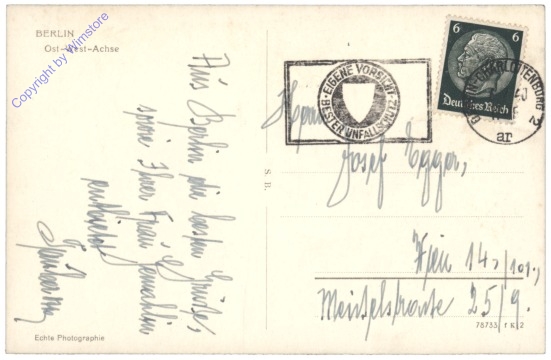 BERLIN
Ost-West-Achse
Copyright by Wimstore
Aus Berlin die besten Grüße,
sowie Ihrer Frau Gemahlin
entbietet
Echte Photographie
S. B.
EIGENE VORSICHT
BESTER UNFALLSCHUTZ
6 6
Deutsches Reich
CHARLOTTENBURG 2
ar
Herrn
Josef Egger,
Wien 14/101.,
Meiselstraße 25/9.
78733 f K 2